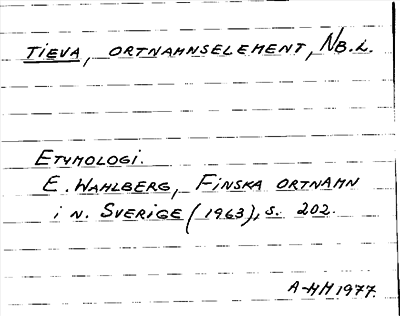 TIEVA, ORTNAMNSELEMENT, NB.L.
ETYMOLOGI.
E. WAHLBERG, FINSKA ORTNAMN
i N. SVERIGE (1963), S. 202.
A-HH 1977.